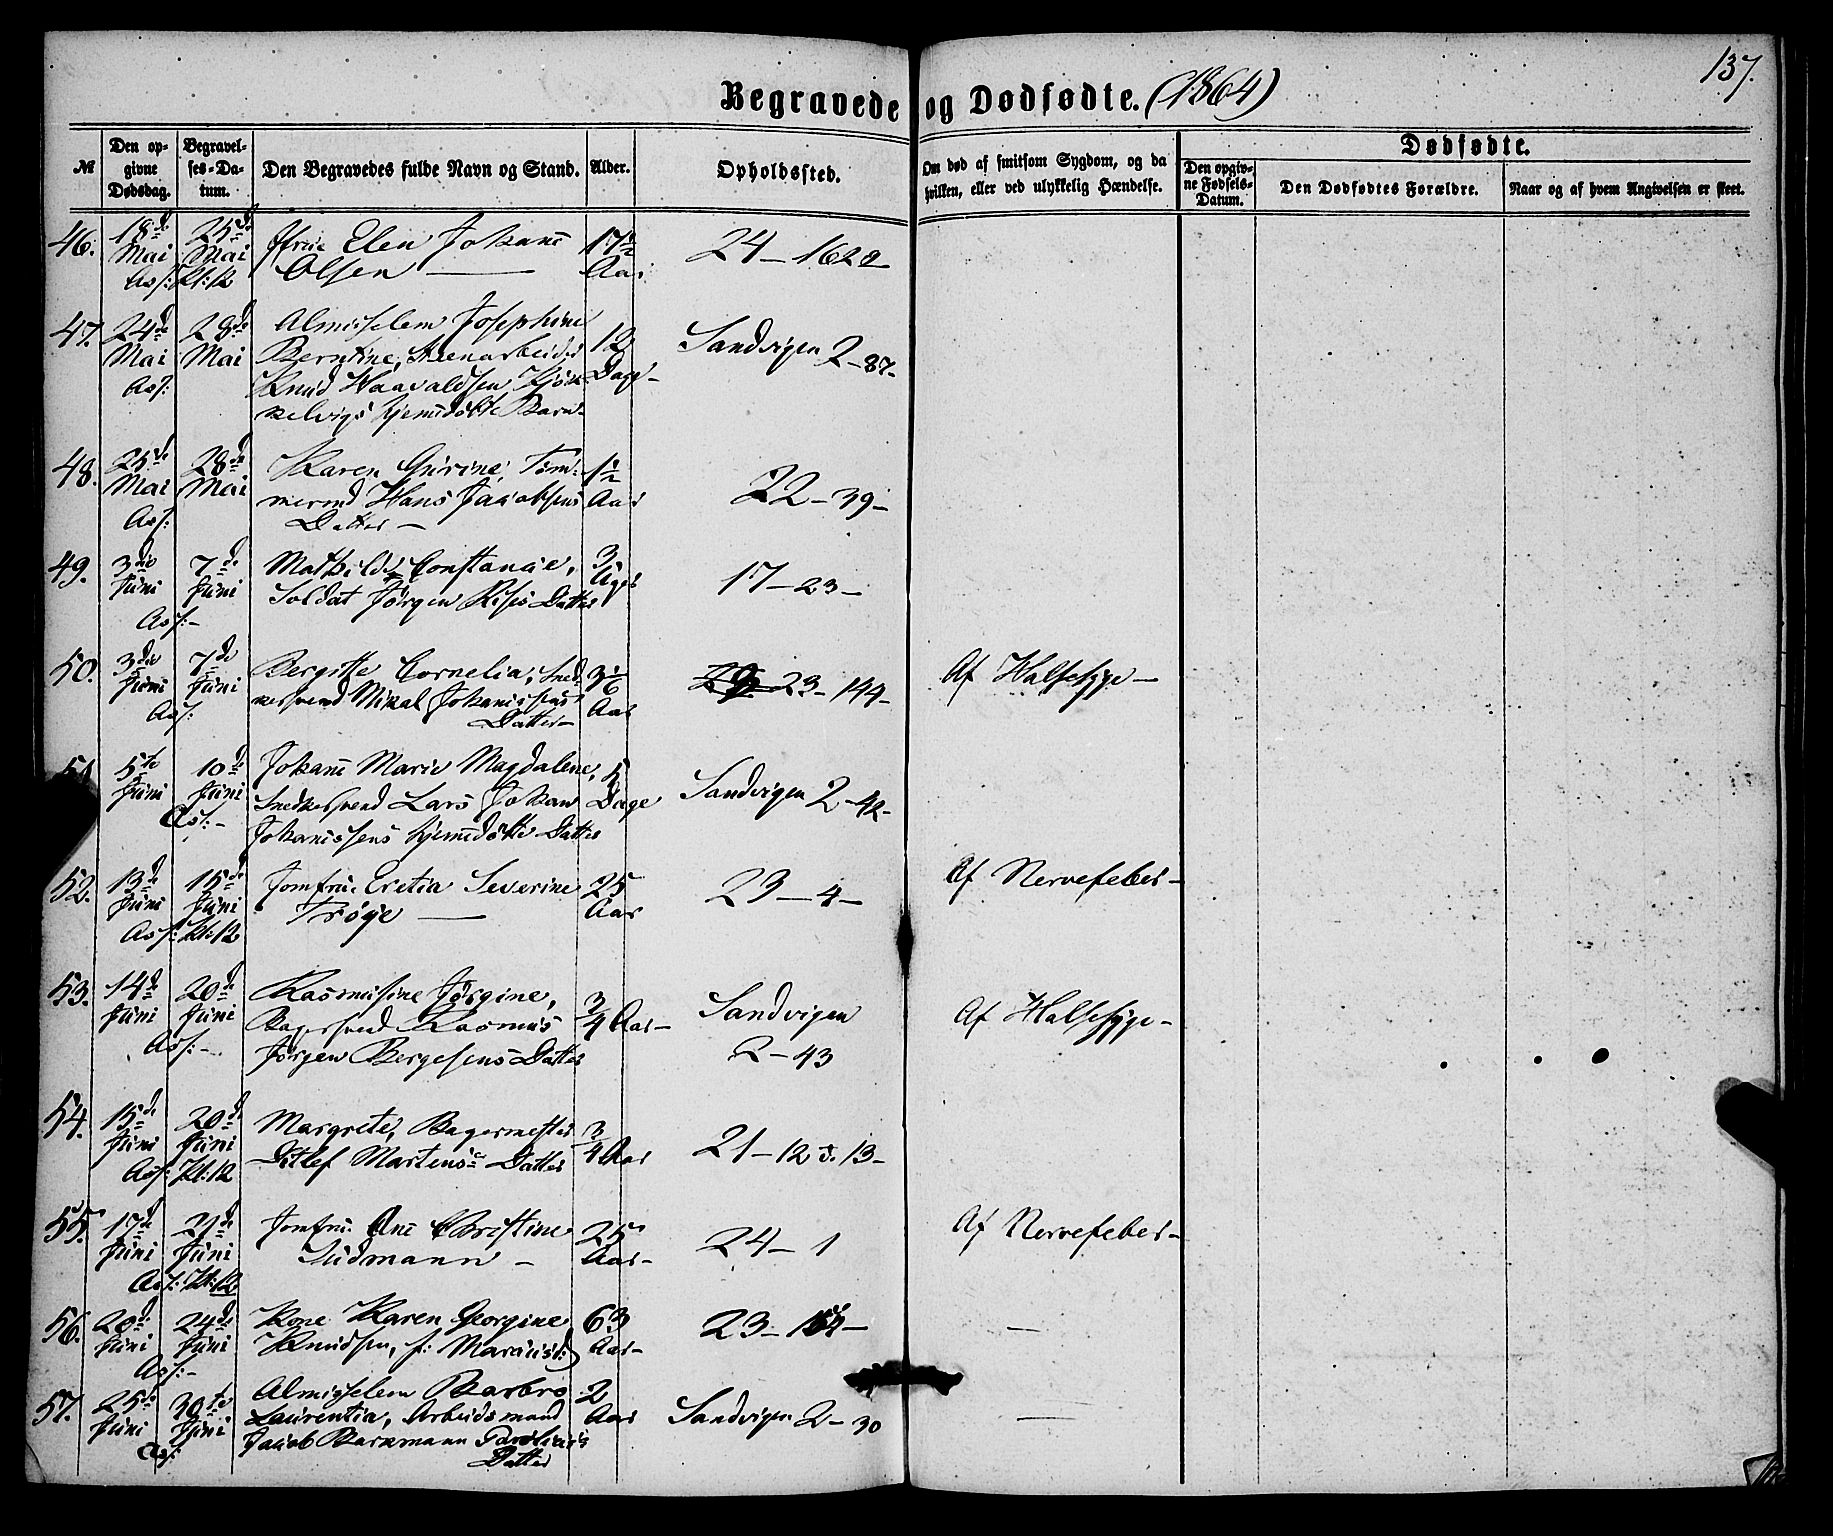 137.
Begravede og Dødfødte. (1864)
№
Den opgivne Dødsdag.
Begravelses-Datum.
Den Begravedes fulde Navn og Stand.
Alder.
Opholdssted.
Om død af smitsom Sygdom, og da hvilken, eller ved ulykkelig Hændelse.
Dødfødte.
Den opgivne Fødsels-Datum.
Den Dødfødtes Forældre.
Naar og af hvem Angivelsen er skeet.
46. 18de Mai 25de Mai
Elen Johane
Olsen —
17½ Aar
24 –
Kl: 12
47. 24de Mai 28de Mai
Josephine
Berntine,
Knud Haavaldsen
hjemdøbte Barn
12 Dage –
Sandvigen 2 – 87 –
48. 25de Mai 28de Mai
Karen Gurine, Tøm-
mermd Hans Jacobsens
Datter –
1½ Aar
22 – 39 –
49. 3die Juni 7de Juni
Mathilde Constance,
Soldat Jørgen Datter
3 Uger
17 – 23 –
50. 3die Juni 7de Juni
Bergitte Cornelia, Sned-
kersvend Mikal Johannissens
Datter –
3 1/6 Aar
23 – 144 –
Af Halsesyge –
51. 5te Juni 10de Juni
Johane Marie Magdalene,
Snedkersvend Lars Johan
Johanissens hjemdøbte Datter
5 Dage
Sandvigen 2 – 42 –
52. 13de Juni 15de Juni
Jomfrue Severine
Trøye —
25 Aar
23 – 4 –
Af Nervefeber –
Kl: 12
53. 14de Juni 20de Juni
Rasmusine Jørgine,
Bagersvend Rasmus
Jørgen Bergesens Datter
3/4 Aar –
Sandvigen
2 – 43
Af Halsesyge –
54. 15de Juni 20de Juni
Margrete, Bagermester
Ditlef Martens Datter
3/4 Aar
21 – 12 o. 13 –
Kl: 12
55. 17de Juni 21de Juni
Jomfru Ane Christine
Sudmann –
25 Aar –
24 – 1
Af Nervefeber –
Kl: 12
56. 20de Juni 24de Juni
Kone Karen Georgine
Knudsen, f:
63 Aar –
23 –
—
57. 25de Juni 30te Juni
Barbro
Laurentia, Arbeidsmand
Jacob
Datter
2 Aar
Sandvigen 2 – 30
—